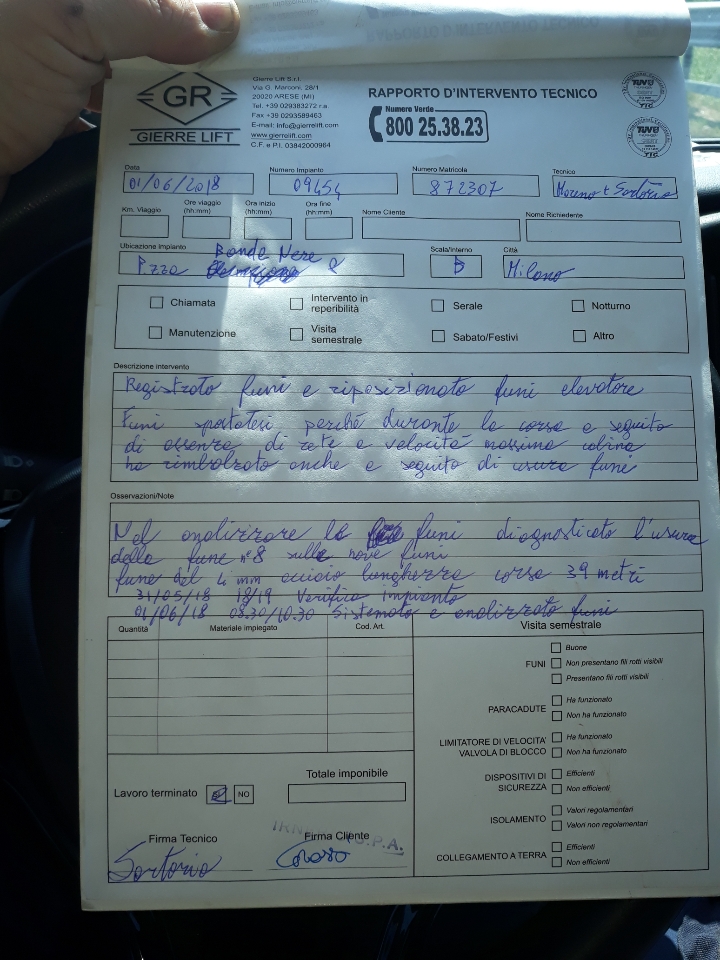 RAPPORTO D'INTERVENTO TECNICO
GR
GIERRE LIFT
Gierre Lift S.r.l.
Via G. Marconi, 28/1
20020 ARESE (MI)
Tel. +39 029383272 r.a.
Fax +39 0293589463
E-mail: info@gierrelift.com
www.gierrelift.com
C.F. e P.I. 03842000964
RAPPORTO D'INTERVENTO TECNICO
Numero Verde
800 25.38.23
TÜV
TIC
TÜV
TIC
Data Numero Impianto Numero Matricola Tecnico
01/06/2018 09454 872307 Moreno + Sartorio
Km. Viaggio Ore viaggio (hh:mm) Ora inizio (hh:mm) Ora fine (hh:mm) Nome Cliente Nome Richiedente
Ubicazione Impianto Scala/Interno Città
P.zza Bande Nere 2 B Milano
Chiamata Intervento in reperibilità Serale Notturno
Manutenzione Visita semestrale Sabato/Festivi Altro
Descrizione intervento
Registrato funi e riposizionato funi elevatore
Funi spostatesi perché durante la corsa a seguito
di assenza di rete a velocità massima cabina
ha rimbalzato anche a seguito di usura funi
Osservazioni/Note
Nel analizzare le funi diagnosticato l'usura
della fune n°8 sulle nove funi
fune del 4 mm acciaio lunghezza corsa 39 metri
31/05/18 18/19 Verifica impianto
01/06/18 08.30/10.30 Sistemato e analizzato funi
Quantità Materiale impiegato Cod. Art.
Visita semestrale
FUNI
Buone
Non presentano fili rotti visibili
Presentano fili rotti visibili
PARACADUTE
Ha funzionato
Non ha funzionato
LIMITATORE DI VELOCITA'
VALVOLA DI BLOCCO
Ha funzionato
Non ha funzionato
DISPOSITIVI DI
SICUREZZA
Efficienti
Non efficienti
ISOLAMENTO
Valori regolamentari
Valori non regolamentari
COLLEGAMENTO A TERRA
Efficienti
Non efficienti
Totale imponibile
Lavoro terminato SI NO
Firma Tecnico Firma Cliente
S.P.A.
Sartorio